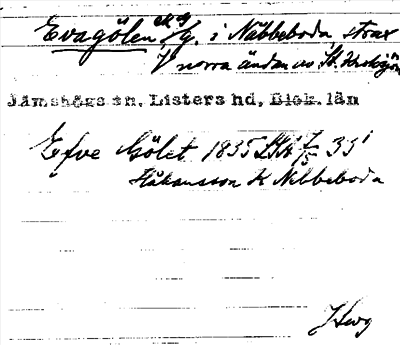 Evagölen, ek o/g. i Näbbeboda, strax
V norra ändan av St. Kroksjön
Jämshögs sn, Listers hd, Blek. län
Efve Gölet 1835
Håkansson K Nebbeboda